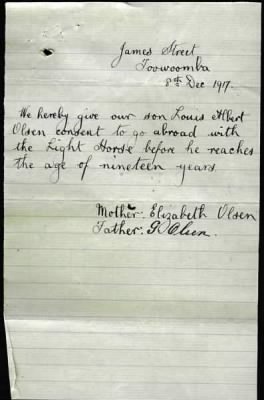 James Street
Toowoomba
8th Dec 1917.
We hereby give our son Louis Albert
Olsen consent to go abroad with
the Light Horse before he reaches
the age of nineteen years
Mother. Elizabeth Olsen
Father. Olsen.